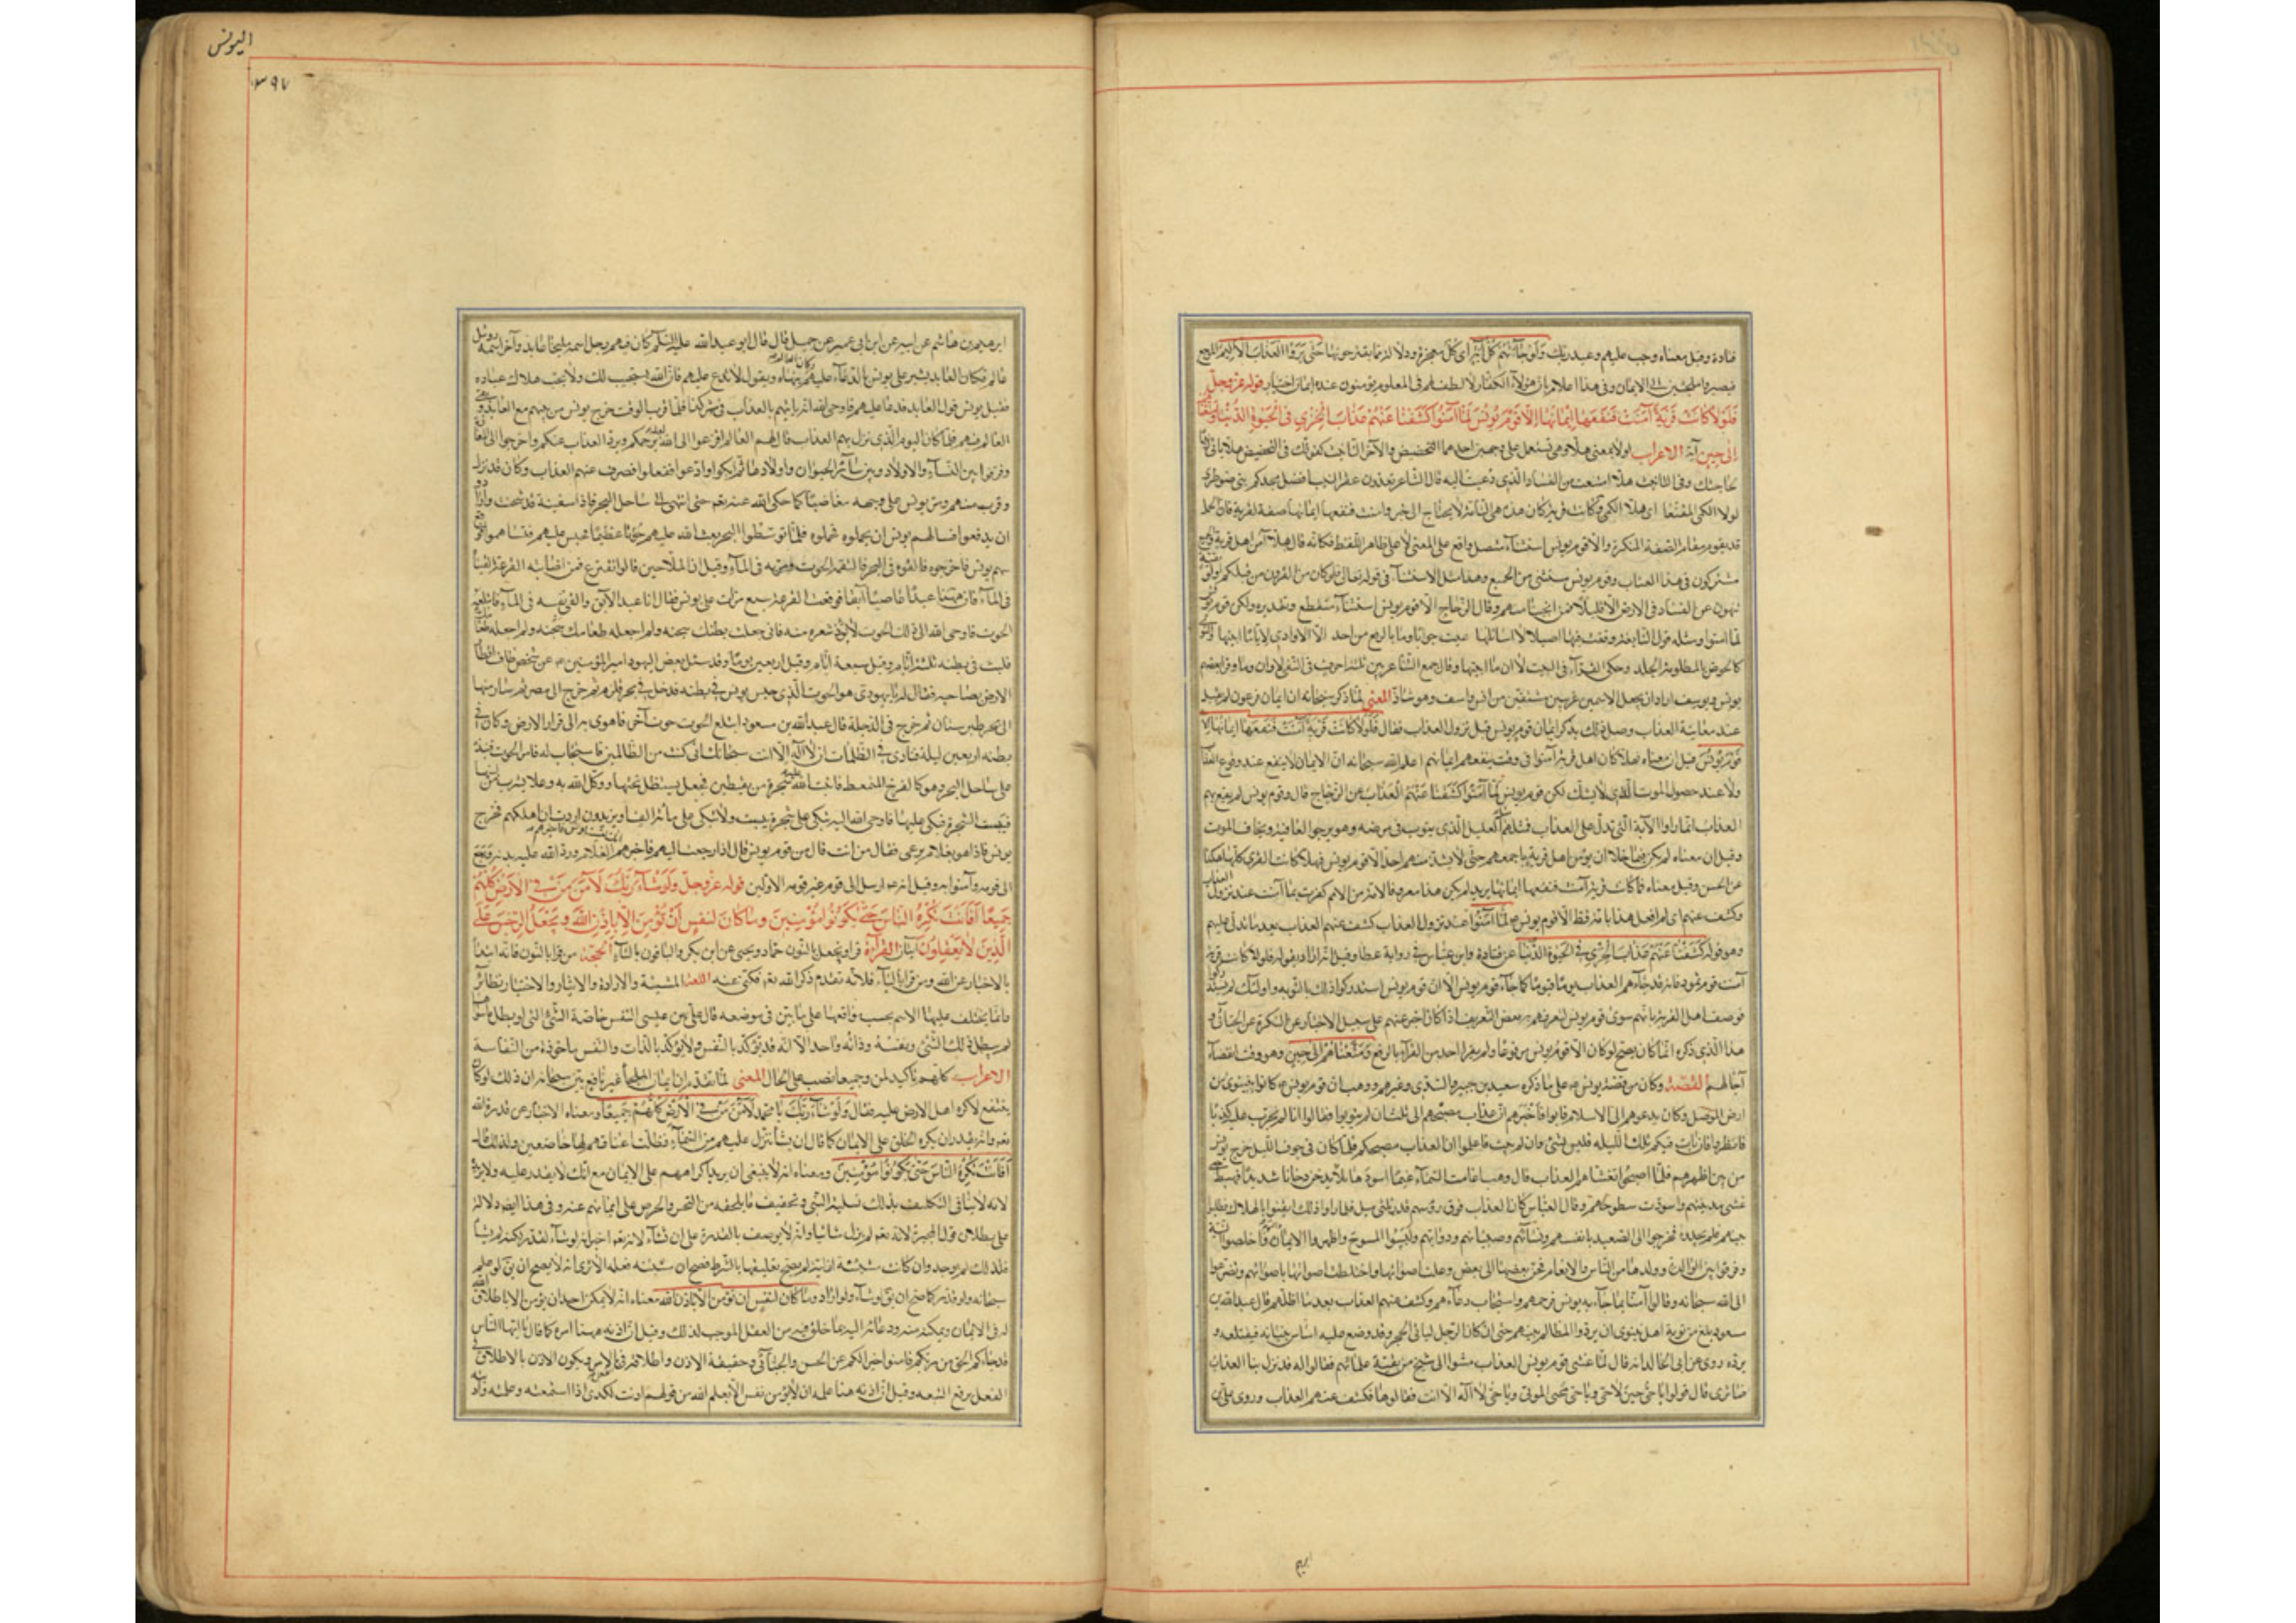 قتادة وقيل معناه وجب عليهم وعيد ربك ولو جاءتهم كل آية اى كل معجزة ودلالة مما يقترحونها حتى يروا العذاب الاليم الموجع
فيصيروا ملجئين الى الايمان وفى هذا اعلام بان هؤلاء الكفار لا لطف لهم فى المعلوم يؤمنون عنده ايمان اختيار قوله عز وجل
فَلَوْلَا كَانَتْ قَرْيَةٌ آمَنَتْ فَنَفَعَهَا إِيمَانُهَا إِلَّا قَوْمَ يُونُسَ لَمَّا آمَنُوا كَشَفْنَا عَنْهُمْ عَذَابَ الْخِزْيِ فِي الْحَيَوةِ الدُّنْيَا وَمَتَّعْنَاهُمْ
إِلَى حِينٍ آية الاعراب لولا بمعنى هلا وهى تستعمل على وجهين احدهما التحضيض والآخر التانيث كقولك فى التحضيض هلا تاتى زيدا
لحاجتك وفى التانيث هلا امتنعت من الفساد الذى دعيت اليه قال الشاعر تعدون عقر النيب افضل مجدكم بنى ضوطرى
لولا الكمى المقنعا اى هلا الكمى وكانت قرية كان هذه هى التامة لا يحتاج الى خبر وآمنت فنفعها ايمانها صفة لقرية فان الجملة
قد يقوم مقام الصفة المنكرة والا قوم يونس استثناء متصل واقع على المعنى لا على ظاهر اللفظ فكانه قال هلا آمن اهل قرية والجميع
مشتركون فى هذا العتاب وقوم يونس مستثنى من الجميع ومثل الاستثناء فى قوله تعالى فلولا كان من القرون من قبلكم اولوا بقية
ينهون عن الفساد فى الارض الا قليلا ممن انجينا منهم وقال الزجاج الا قوم يونس استثناء منقطع وتقديره ولكن قوم يونس
لما آمنوا ومثله قول النابغة وقفت فيها اصيلالا اسائلها عيت جوابا وما بالربع من احد الا الاوارى لايا ما ابينها والنؤى
كالحوض بالمظلومة الجلد وحكى الفراء فى البيت لا ان ما ابينها وقال جمع الشاعر بين ثلثة احرف فى النفى لا وان وما وقرا بعضهم
يونس ويوسف اراد ان يجعل الاسمين عربيين مشتقين من آنس وآسف وهو شاذ المعنى لما ذكر سبحانه ان ايمان فرعون لم يقبل
عند معاينة العذاب وصل ذلك بذكر ايمان قوم يونس قبل نزول العذاب فقال فَلَوْلَا كَانَتْ قَرْيَةٌ آمَنَتْ فَنَفَعَهَا ايمانها الا
قَوْمَ يُونُسَ قيل ان معناه فهلا كان اهل قرية آمنوا فى وقت ينفعهم ايمانهم اعلم الله سبحانه ان الايمان لا ينفع عند وقوع العذاب
ولا عند حصول الموت الذى لا يشك لكن قوم يونس لَمَّا آمَنُوا كَشَفْنَا عَنْهُمُ الْعَذَابَ عن الزجاج قال وقوم يونس لم يقع بهم
العذاب انما راوا الآية التى تدل على العذاب فمثلهم كمثل العليل الذى يتوب فى مرضه وهو يرجوا العافية ويخاف الموت
وقيل ان معناه لم يكن فيما خلا ان يؤمن اهل قرية باجمعهم حتى لا يشذ منهم احد الا قوم يونس فهلا كانت القرى كلها هكذا
عن الحسن وقيل معناه فما كانت قرية آمنت فنفعها ايمانها يريد لم يكن هذا معروفا لامة من الامم كفرت ثم آمنت عند نزول العذاب
وكشف عنهم اى لم افعل هذا بامة قط الا قوم يونس لَمَّا آمَنُوا عند نزول العذاب كشف عنهم العذاب بعد ما تدلى عليهم
وهو قوله كَشَفْنَا عَنْهُمْ عَذَابَ الْخِزْيِ فِي الْحَيَوةِ الدُّنْيَا عن قتادة وابن عباس فى رواية عطا وقيل انه اراد بقوله فلولا كانت قرية
آمنت قوم ثمود فانه قد جاءهم العذاب يوما فيوما كما جاء قوم يونس الا ان قوم يونس استدركوا ذلك بالتوبة واولئك لم يستدركوا
فوصف اهل القرية بانهم سوى قوم يونس ليعرفهم به بعض التعريف اذ كان اخبر عنهم على سبيل الاخبار عن النكرة عن الجبائى و
هذا الذى ذكره انما كان يصح لو كان الا قوم يونس مرفوعا ولم يقرا احد من القراء بالرفع وَمَتَّعْنَاهُمْ إِلَى حِينٍ وهو وقت انقضاء
آجالهم القصة وكان من قصة يونس على ما ذكره سعيد بن جبير والسدى وغيرهم ووهب ان قوم يونس كانوا بنينوى من
ارض الموصل وكان يدعوهم الى الاسلام فابوا فاخبرهم ان العذاب مصبحهم الى ثلث ان لم يتوبوا فقالوا انا لم نجرب عليه كذبا
فانظروا فان بات فيكم تلك الليلة فليس بشئ وان لم يبت فاعلموا ان العذاب مصبحكم فلما كان فى جوف الليل خرج يونس
من بين اظهرهم فلما اصبحوا تغشاهم العذاب قال وهب اغامت السماء غيما اسود هائلا يدخن دخانا شديدا فهبط حتى
غشى مدينتهم واسودت سطوحهم وقال ابن عباس كان العذاب فوق رؤسهم قدر ثلثى ميل فلما راوا ذلك ايقنوا بالهلاك فطلبوا
نبيهم فلم يجدوه فخرجوا الى الصعيد بانفسهم ونسائهم وصبيانهم ودوابهم ولبسوا المسوح واظهروا الايمان والتوبة واخلصوا النية
وفرقوا بين الوالدة وولدها من الناس والانعام فحن بعضها الى بعض وعلت اصواتها واختلطت اصواتها باصواتهم وتضرعوا
الى الله سبحانه وقالوا آمنا بما جاء به يونس فرحمهم واستجاب دعاءهم وكشف عنهم العذاب بعد ما اظلهم قال عبد الله بن
مسعود بلغ من توبة اهل نينوى ان يردوا المظالم بينهم حتى ان كان الرجل لياتى الحجر وقد وضع عليه اساس بنيانه فيقتلعه و
يرده وروى عن ابى الخالد انه قال لما غشى قوم يونس العذاب مشوا الى شيخ من بقية علمائهم فقالوا له قد نزل بنا العذاب
فما ترى قال قولوا يا حى حين لا حى ويا حى يحيى الموتى ويا حى لا اله الا انت فقالوها فكشف عنهم العذاب وروى على بن
ابرهيم
اليونس
٣٩٧
ابرهيم بن هاشم عن ابيه عن ابن ابى عمير عن جميل قال قال ابو عبد الله عليه السلم كان فيهم رجل اسمه مليخا عابد وآخر اسمه روبيل
عالم فكان العابد يشير على يونس بالدعاء عليهم وكان العالم ينهاه ويقول لا تدع عليهم فان الله يستجيب لك ولا يحب هلاك عباده
فقبل يونس قول العابد فدعا عليهم فاوحى الله انه ياتيهم بالعذاب فى شهر كذا فلما قرب الوقت خرج يونس من بينهم مع العابد وبقى
العالم فيهم فلما كان اليوم الذى نزل بهم العذاب قال لهم العالم افزعوا الى الله لعله يرحمكم ويرد العذاب عنكم واخرجوا الى المفازة
وفرقوا بين النساء والاولاد وبين سائر الحيوان واولادها ثم ابكوا وادعوا ففعلوا فصرف عنهم العذاب وكان قد نزل
وقرب منهم ومر يونس على وجهه مغاضبا كما حكى الله عنه نعم حتى انتهى الى ساحل البحر فاذا سفينة قد شحنت وارادوا
ان يدفعوا فسالهم يونس ان يحملوه فحملوه فلما توسطوا البحر بعث الله عليهم حوتا عظيما فحبس عليهم فتساهموا فوقع
سهم يونس فاخرجوه فالقوه فى البحر فالتقمه الحوت فمر به فى الماء وقيل ان الملاحين قالوا نقترع فمن اصابته القرعة القيناه
فى الماء فان هيهنا عبدا عاصيا آبقا فوقعت القرعة سبع مرات على يونس فقال انا عبد الآبق والقى نفسه فى الماء فابتلعه
الحوت فاوحى الله الى ذلك الحوت لا تؤذ شعرة منه فانى جعلت بطنك سجنه ولم اجعله طعامك
فلبث فى بطنه ثلثة ايام وقيل سبعة ايام وقيل اربعين يوما وقد سئل بعض اليهود امير المؤمنين عن سجن طاف اقطار
الارض بصاحبه فقال له يا يهودى هو الحوت الذى حبس يونس فى بطنه فدخل فى بحر قلزم ثم خرج الى مصر ثم سار منها
الى بحر طبرستان ثم خرج فى الدجلة قال عبد الله بن مسعود ابتلع الحوت حوت آخر فاهوى به الى قرار الارض وكان فى
بطنه اربعين ليلة فنادى فى الظلمات ان لا اله الا انت سبحانك انى كنت من الظالمين فاستجاب له فامر الحوت فنبذه
على ساحل البحر وهو كالفرخ المتمعط فانبت الله عليه شجرة من يقطين فجعل يستظل تحتها ووكل الله به وعلا يشرب من لبنها
فيبست الشجرة فبكى عليها فاوحى الله اليه تبكى على شجرة يبست ولا تبكى على مائة الف او يزيدون اردت ان اهلكهم فخرج
يونس فاذا هو بغلام يرعى فقال من انت قال من قوم يونس قال اذا رجعت اليهم فاخبرهم انك لقيت يونس فاخبرهم الغلام ورد الله عليه بدنه فرجع
الى قومه وآمنوا به وقيل انه ارسل الى قوم غير قومه الاولين قوله عز وجل وَلَوْ شَاءَ رَبُّكَ لَآمَنَ مَنْ فِي الْأَرْضِ كُلُّهُمْ
جَمِيعًا أَفَأَنْتَ تُكْرِهُ النَّاسَ حَتَّى يَكُونُوا مُؤْمِنِينَ وَمَا كَانَ لِنَفْسٍ أَنْ تُؤْمِنَ إِلَّا بِإِذْنِ اللَّهِ وَنَجْعَلُ الرِّجْسَ عَلَى
الَّذِينَ لَا يَعْقِلُونَ آيتان القراءة قرا ونجعل بالنون حماد ويحيى عن ابى بكر والباقون بالياء الحجة من قرا بالنون فانه ابتدا
بالاخبار عن الله ومن قرا بالياء فلانه تقدم ذكر الله نعم فكنى عنه اللغة المشية والارادة والايثار والاختيار نظائر
وانما يختلف عليها الاسم بحسب مواقعها على ما بين فى موضعه قال على بن عيسى النفس خاصة الشئ التى لو بطل ما سواها
لم يبطل ذلك الشئ ونفسه وذاته واحد الا انه قد يؤكد بالنفس ولا يؤكد بالذات والنفس ماخوذة من النفاسة
الاعراب كلهم تاكيد لمن وجميعا نصب على الحال المعنى لما تقدم ان ايمان الملجأ غير نافع بين سبحانه ان ذلك لو كان
ينتفع لاكره اهل الارض عليه فقال وَلَوْ شَاءَ رَبُّكَ يا محمد لَآمَنَ مَنْ فِي الْأَرْضِ كُلُّهُمْ جَمِيعًا ومعناه الاخبار عن قدرة الله
نعم وانه يقدر ان يكره الخلق على الايمان كما قال ان نشا ننزل عليهم من السماء آية فظلت اعناقهم لها خاضعين ولذلك قال
أَفَأَنْتَ تُكْرِهُ النَّاسَ حَتَّى يَكُونُوا مُؤْمِنِينَ ومعناه انه لا ينبغى ان يريد اكراههم على الايمان مع انك لا تقدر عليه ولا تريده
لانه لا ينافى التكليف بذلك تسلية النبى وتخفيف ما يلحقه من التحسر والحرص على ايمانهم عنه وفى هذا ايضا دلالة
على بطلان قول المجبرة لانه نعم لم يزل شائيا وانه لا يوصف بالقدرة على ان يشاء لانه نعم اخبر انه لو شاء لقدر لكنه لم يشأ
فلذلك لم يوجد ولو كانت مشيته ازلية لم يصح تعليقها بالشرط فصح ان مشيته فعله الا ترى انه لا يصح ان يق لو علم
سبحانه ولو قدر كما صح ان يق لو شاء ولو اراد وَمَا كَانَ لِنَفْسٍ أَنْ تُؤْمِنَ إِلَّا بِإِذْنِ اللَّهِ معناه انه لا يمكن احد ان يؤمن الا باطلاق الله
له فى الايمان وتمكينه منه ودعائه اليه بما خلق فيه من العقل الموجب لذلك وقيل ان اذنه هيهنا امره كما قال يا ايها الناس
قد جاءكم الحق من ربكم فآمنوا خيرا لكم عن الحسن والجبائى وحقيقة الاذن واطلاقه فى الفعل بالامر ويكون الاذن بالاطلاق فى
الفعل برفع التبعة وقيل ان اذنه هنا علمه اى لا تؤمن نفس الا بعلم الله من قولهم اذنت لكذى اذا استمعته وعلمته وآذنته